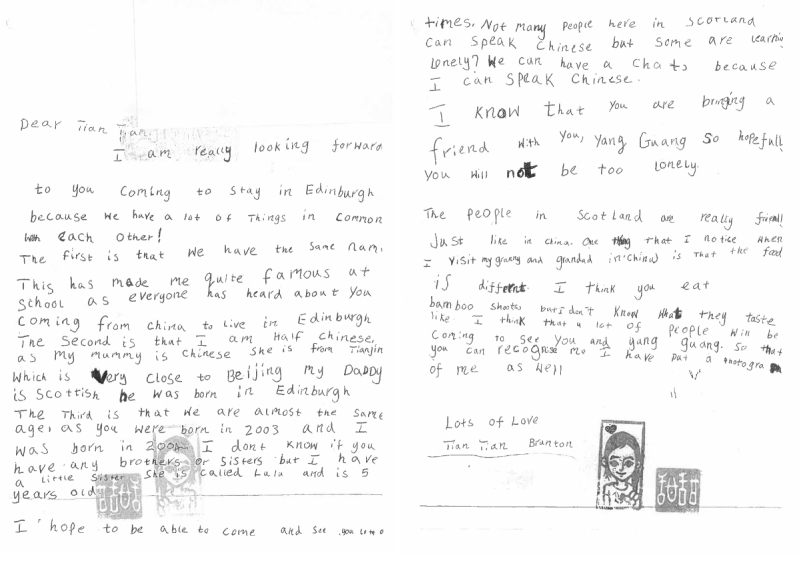 Dear Tian Tian,
I am really looking forward
to you coming to stay in Edinburgh
because we have a lot of Things in common
with each other!
The first is that we have the same nam
This has made me quite famous at
School as everyone has heard about you
coming from china to live in Edinburgh
The second is that I am Half chinese,
as my mummy is chinese she is from Tianjin
which is very close to Beijing my Daddy
is scottish he was born in Edinburgh
The Third is that we are almost the same
age, as you were born in 2003 and I
was born in I dont know if you
have any brothers or sisters but I have
a little sister she is called Lulu and is 5
years old
I hope to be able to come and see you lots o
times. Not many people here in Scotland
can speak chinese but some are learnin
lonely? We can have a chats because
I can speak chinese.
I know that you are bringing a
friend with you, yang Guang so hopefull
you will not be too lonely.
The people in Scotland are really friendl
Just like in china. One thing that I notice when
I visit my granny and grandad in china is that the food
is different I think you eat
bamboo shoots but I don't know what they taste
like. I think that a lot of people will be
coming to see you and yang guang. so that
you can recognise me I have put a photogra
of me as well
Lots of Love
Tian Tian Branton